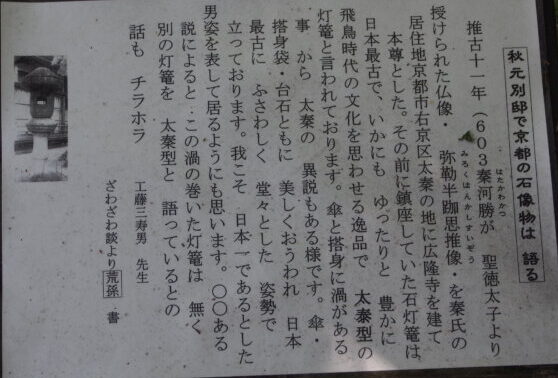 秋元別邸で京都の石像物は 語る
推古十一年(603秦河勝が 聖徳太子より
はたかわかつ
授けられた仏像・ 弥勒半跏思推像・を秦氏の
みろくはんかしすいぞう
居住地京都市右京区太秦の地に広隆寺を建て
本尊とした。その前に鎮座していた石灯篭は
日本最古で、いかにも ゆったりと 豊かに
飛鳥時代の文化を思わせる逸品で 太秦型の
灯篭と言われております。傘と搭身に渦がある
事 から 太秦の 異説もある様です。傘・
搭身袋・台石ともに 美しくおうわれ 日本
最古に ふさわしく 堂々とした 姿勢で
立っております。我こそ 日本一であるとした
男姿を表して居るようにも思います。〇〇ある
説によると:この渦の巻いた灯篭は 無く
別の灯篭を 太秦型と 語っているとの
話も チラホラ
工藤三寿男 先生
ざわざわ談より荒孫 書